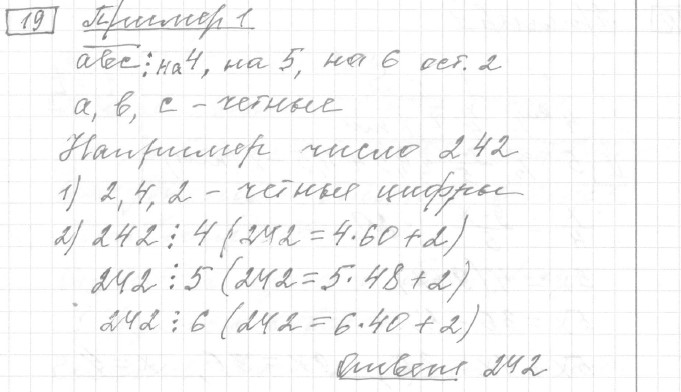 19 Пример 1
авс ⋮ на 4, на 5, на 6 ост. 2
а, в, с - четные
Например число 242
1) 2, 4, 2 - четные цифры
2) 242 ⋮ 4 (242 = 4·60 + 2)
242 ⋮ 5 (242 = 5·48 + 2)
242 ⋮ 6 (242 = 6·40 + 2)
Ответ 242